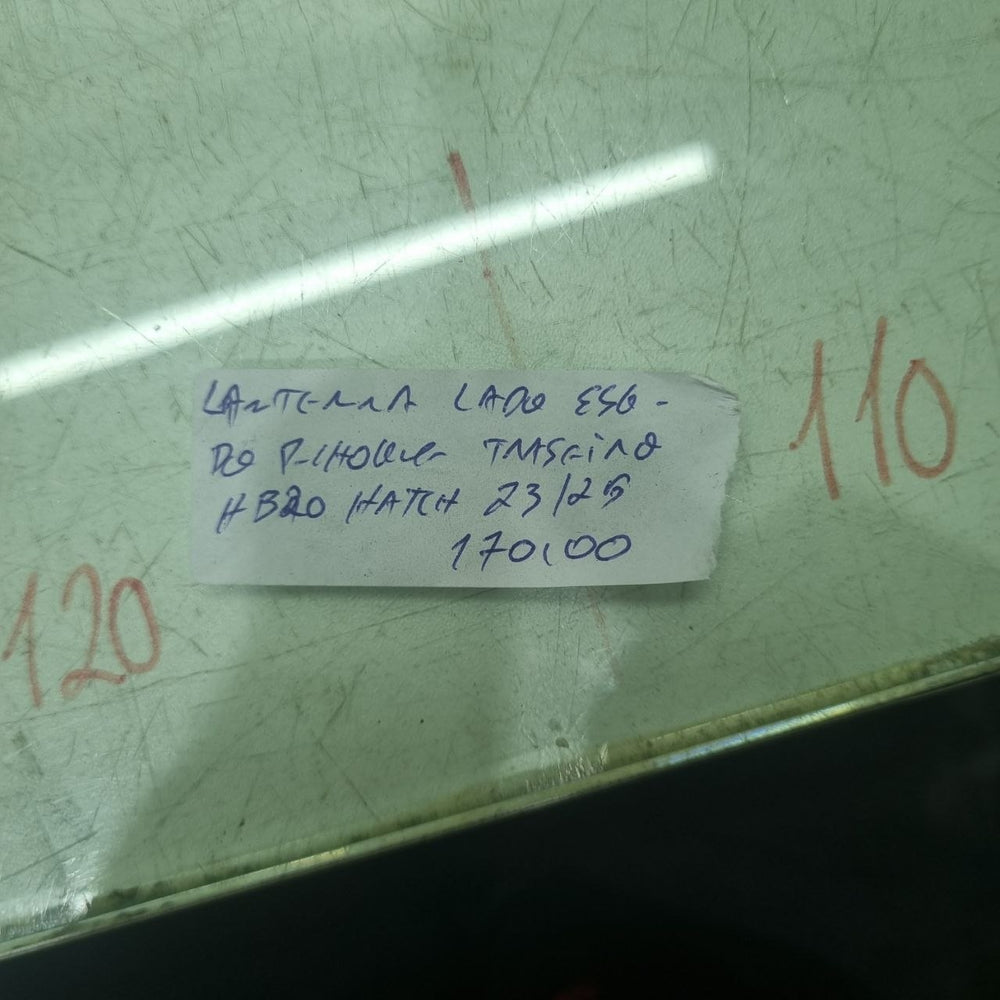 LANTERNA LADO ESQ-
DO P-CHOQUE TRASEIRO
HB20 HATCH 23/25
170,00
110
120